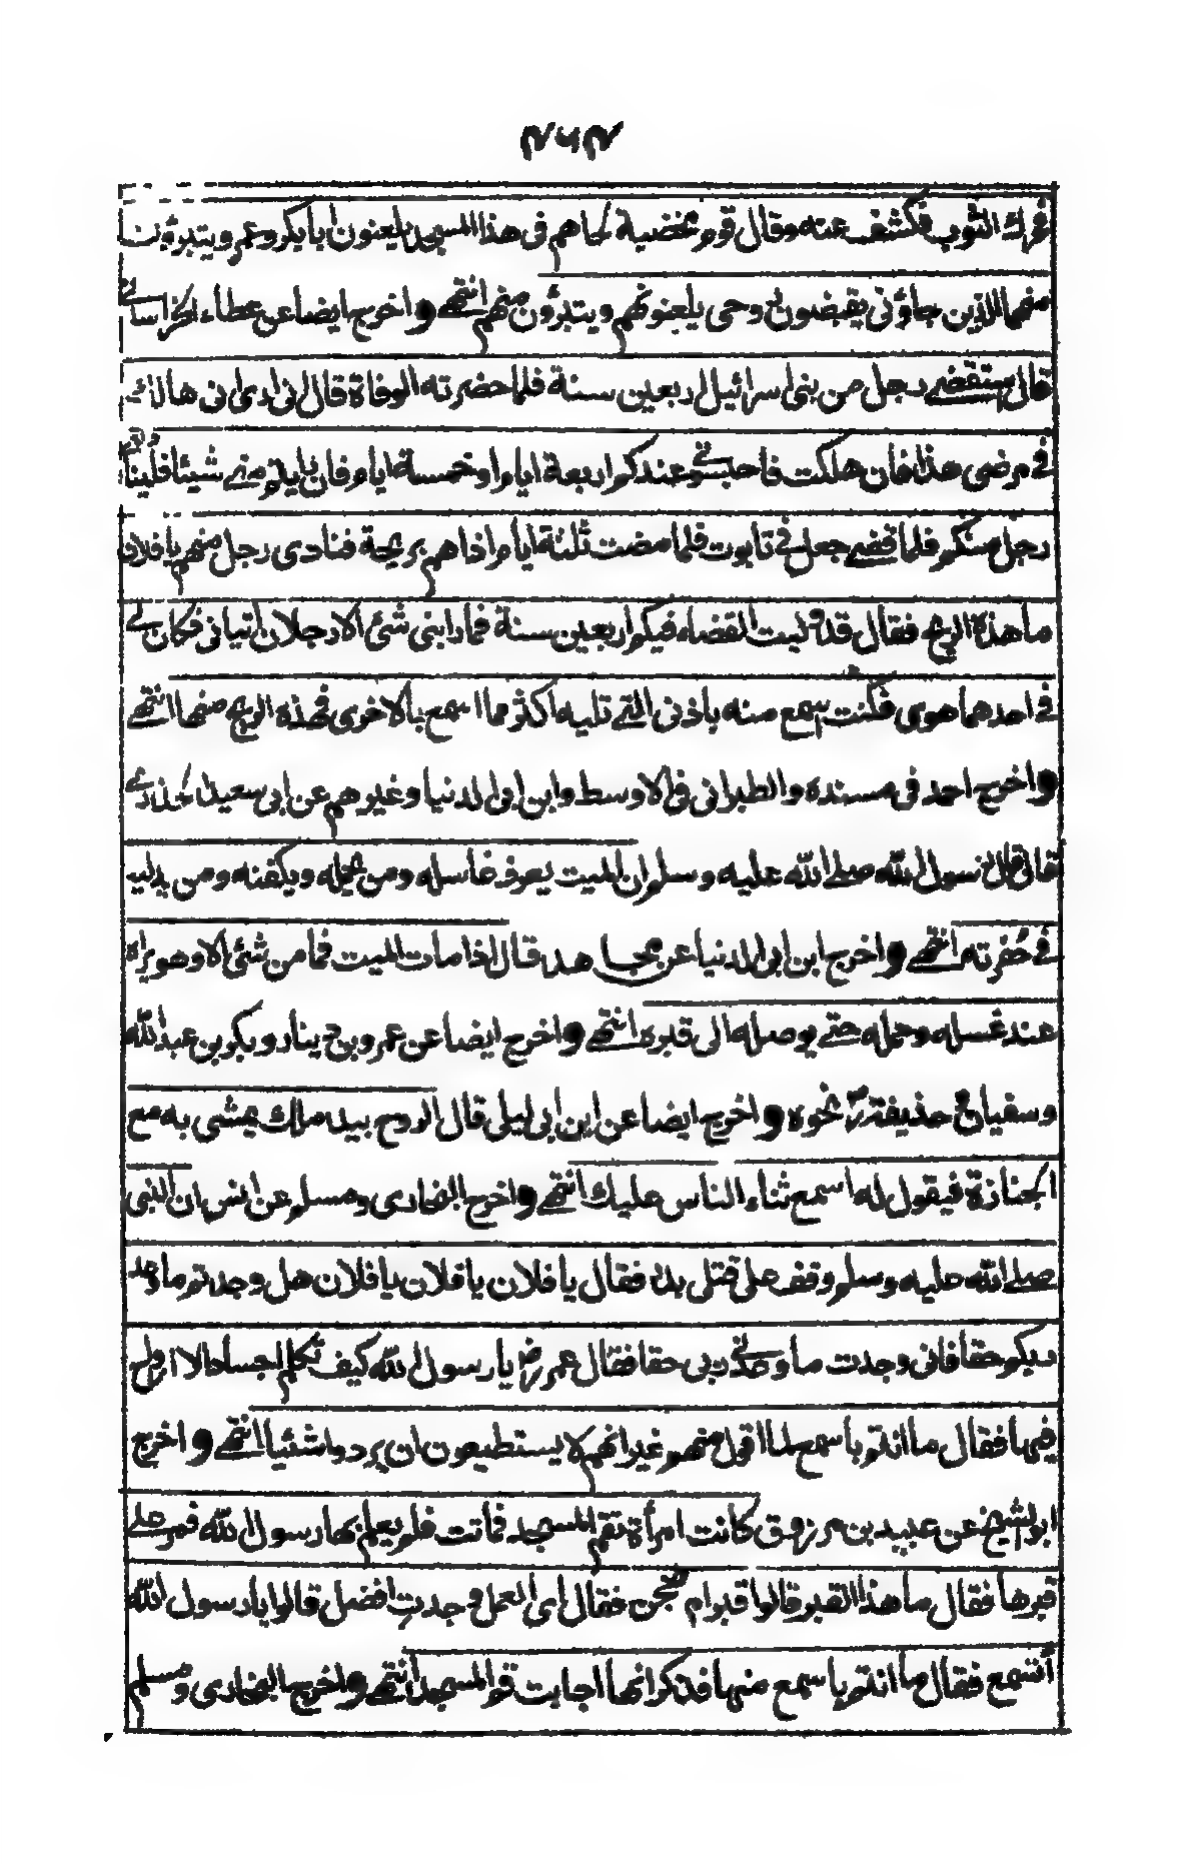 ۲۶۲
فحرك الثوب فكشف عنه وقال قوم مخضبة لحاهم فى هذا المسجد يلعنون ابا بكر وعمر ويتبرؤن
منهما الذين جاؤنى يقبضون روحى يلعنونهم ويتبرؤن منهم انتهى واخرج ايضا عن عطاء الخراسانى
قال استقضى رجل من بنى اسرائيل اربعين سنة فلما حضرته الوفاة قال انى ارى انى هالك
فى مرضى هذا فان هلكت فاحبسونى عندكم اربعة ايام او خمسة ايام فان رابكم منى شيئا فلينادنى
رجل منكم فلما قضى جعل فى تابوت فلما مضت ثلثة ايام اذا هم بريحة فنادى رجل منهم يا فلان
ما هذه الريح فقال قد وليت القضاء فيكم اربعين سنة فما رابنى شئ الا رجلان اتيانى فكان لى
فى احدهما هوى فكنت اسمع منه باذنى التى تليه اكثر مما اسمع بالاخرى فهذه الريح منها انتهى
واخرج احمد فى مسنده والطبرانى فى الاوسط وابن ابى الدنيا وغيرهم عن ابى سعيد الخدرى
قال قال رسول الله صلى الله عليه وسلم ان الميت يعرف غاسله ومن يحمله ويكفنه ومن يدليه
فى حفرته انتهى واخرج ابن ابى الدنيا عن مجاهد قال اذا مات الميت فما من شئ الا وهو يراه
عند غسله وحمله حتى يوصله الى قبره انتهى واخرج ايضا عن عمرو بن دينار وبكر بن عبد الله
وسفيان حذيفة نحوه واخرج ايضا عن ابن ابى ليلى قال الروح بيد ملك يمشى به مع
الجنازة فيقول له اسمع ثناء الناس عليك انتهى واخرج البخارى ومسلم عن انس ان النبى
صلى الله عليه وسلم وقف على قتلى بدر فقال يا فلان يا فلان يا فلان هل وجدتم ما وعد
ربكم حقا فانى وجدت ما وعدنى ربى حقا فقال عمر رض يا رسول الله كيف تكلم اجسادا لا ارواح
فيها فقال ما انتم باسمع لما اقول منهم غير انهم لا يستطيعون ان يردوا شئيا انتهى واخرج
ابو الشيخ عن عبيد بن مرزوق كانت امرأة تقم المسجد فماتت فلم يعلم بها رسول الله فمر على
قبرها فقال ما هذا القبر قالوا قبر ام محجن فقال اى العمل وجدت افضل قالوا يا رسول الله
أتسمع فقال ما انتم باسمع منها فذكر انها اجابت قم المسجد انتهى واخرج البخارى ومسلم